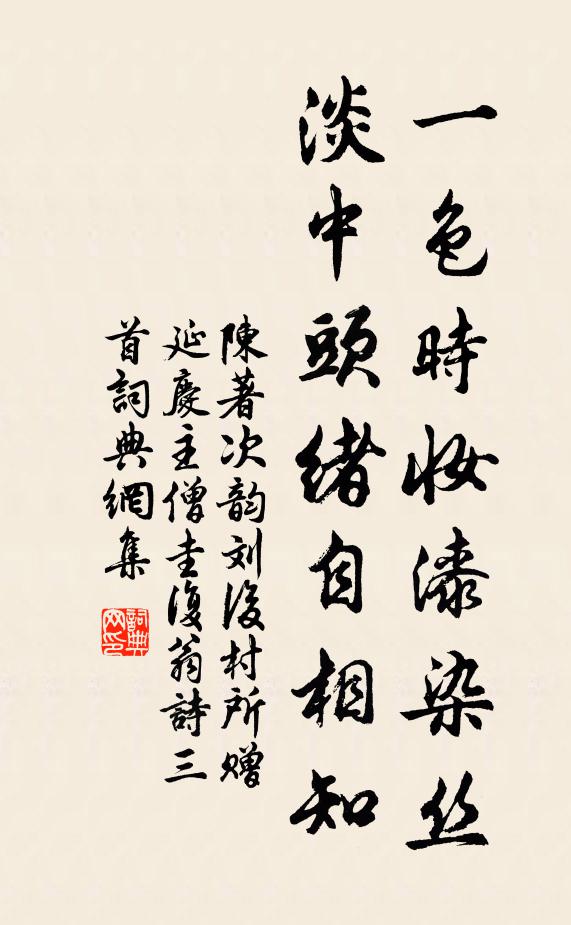 一色時妝漆染丝
淡中頭緒自相知
陳著次韵刘後村所贈
延慶主僧圭復翁詩三
首詞典網集
詞典
网印